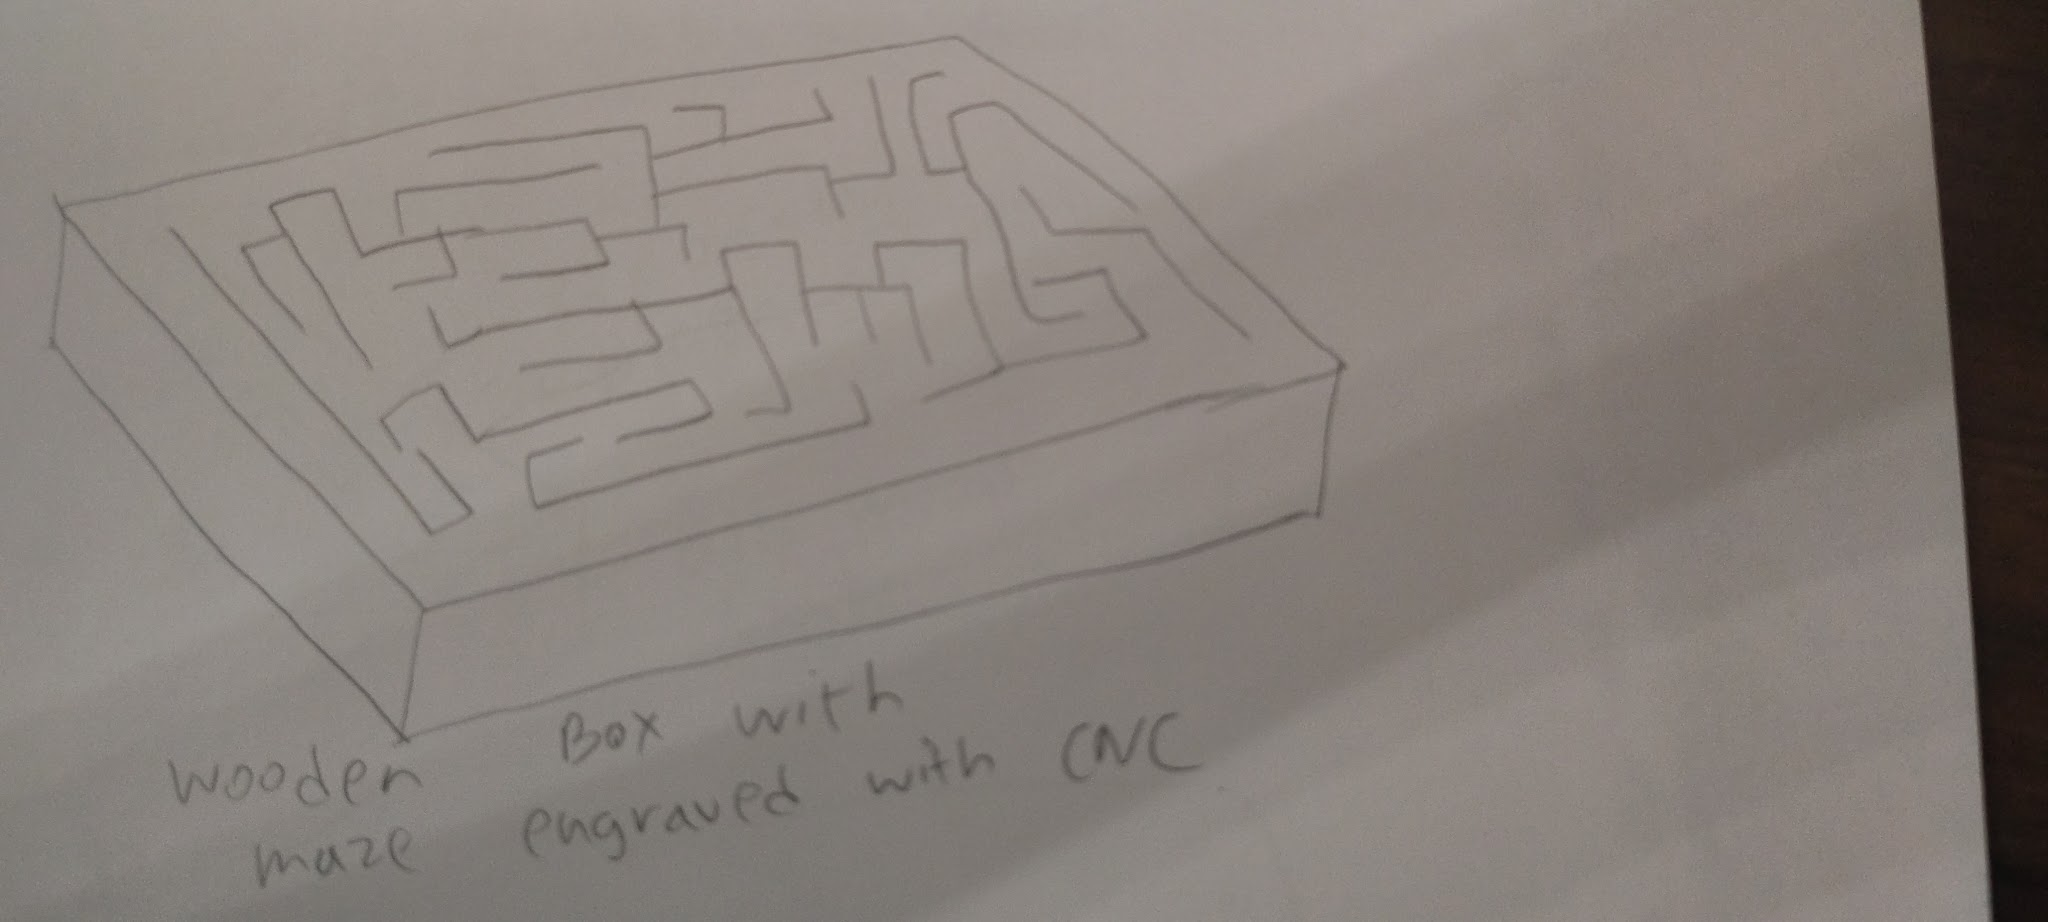 wooden Box with
maze engraved with CNC